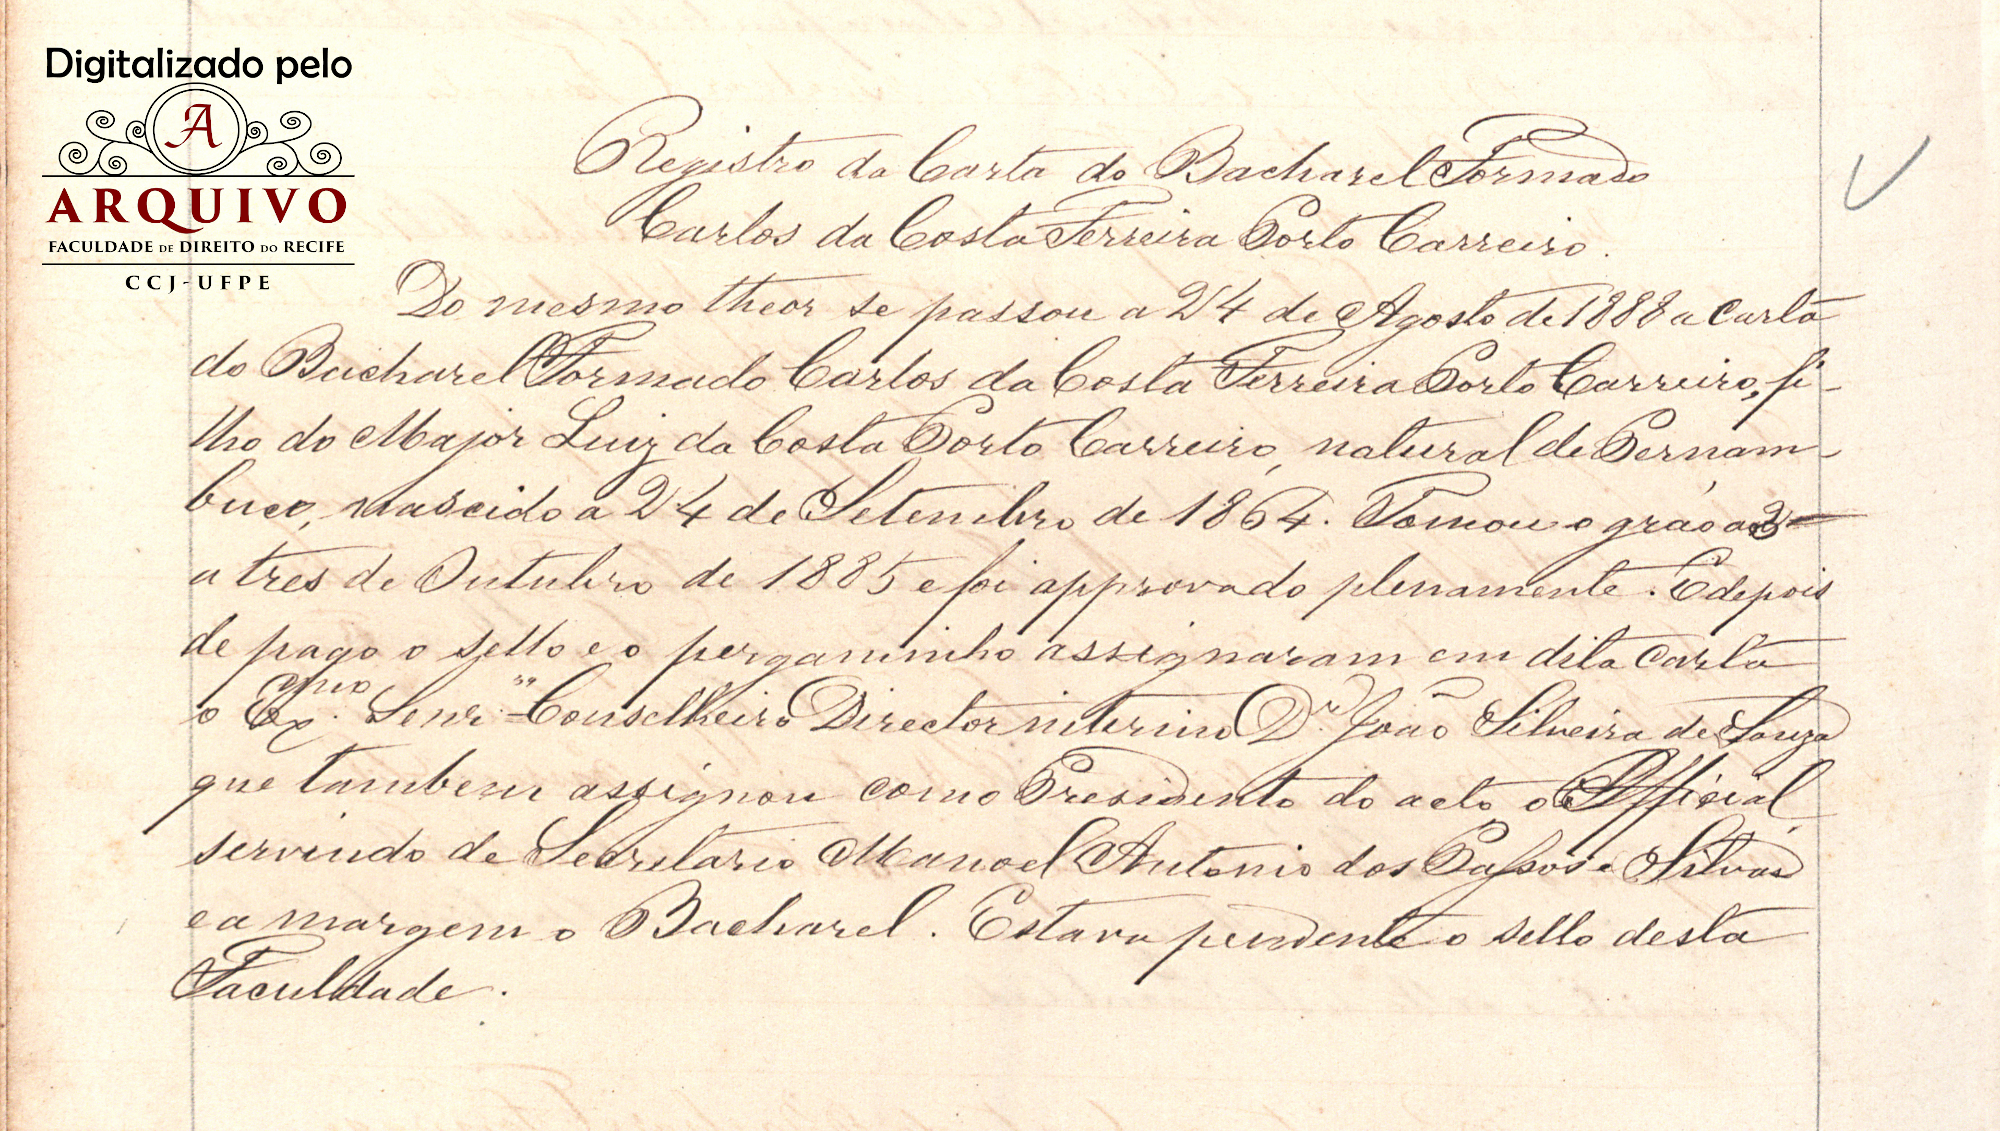 Digitalizado pelo
A
ARQUIVO
FACULDADE DE DIREITO DO RECIFE
CCJ-UFPE
Registro da Carta do Bacharel Formado
Carlos da Costa Ferreira Porto Carreiro.
Do mesmo theor se passou a 24 de Agosto de 1888 a carta
do Bacharel Formado Carlos da Costa Ferreira Porto Carreiro, fi-
lho do Major Luiz da Costa Porto Carreiro, natural de Pernam-
buco, nascido a 24 de Setembro de 1864. Tomou o gráo
a tres de Outubro de 1885 e foi approvado plenamente. E depois
de pago o sello e o pergaminho assignaram em dita carta
o Exmo. Senr. Conselheiro Director interino Dr. João Silveira de Souza
que tambem assignou como Presidente do acto, o Official,
servindo de Secretario Manoel Antonio dos Passos e Silva
e a margem o Bacharel. Estava pendente o sello desta
Faculdade.